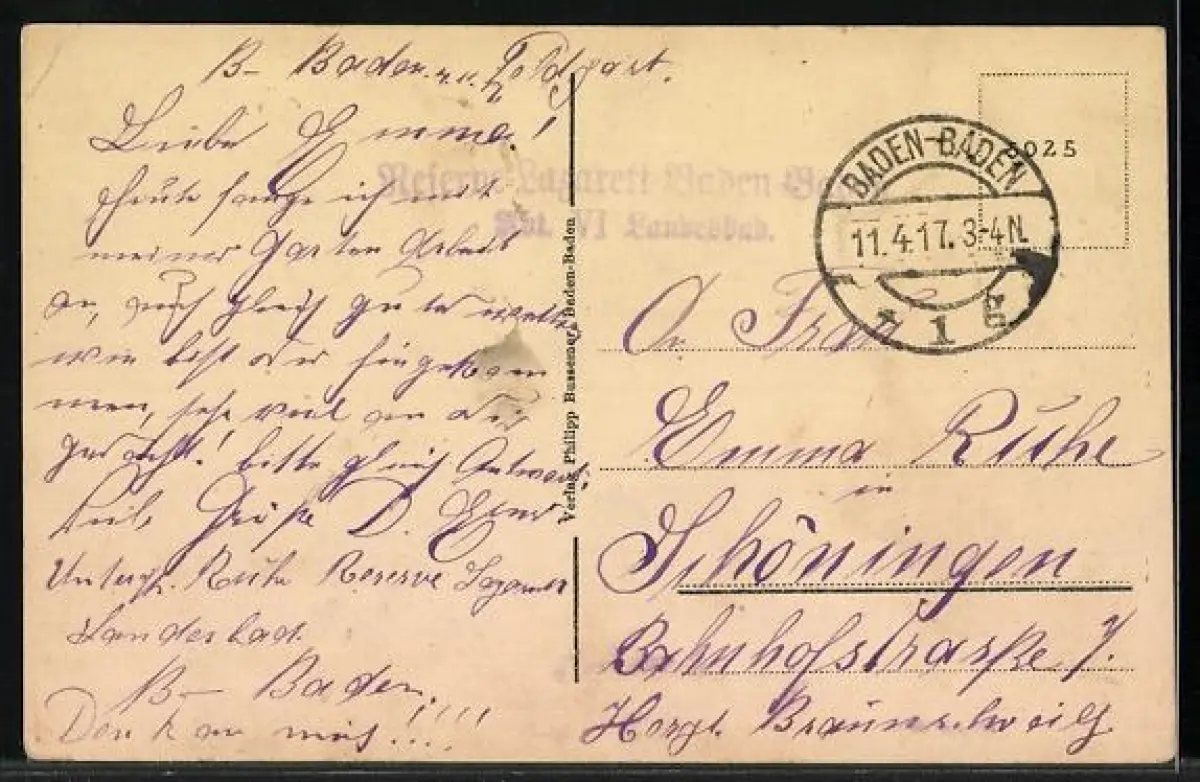 B- Baden
Liebe Emma!
Heute fange ich mit
meiner Garten Arbeit
an, auch gleich
wie bist du hingekom
men, sehr viel an dich
gedacht! bitte gleich Antwort,
Grüße D.
Unteroffz. Ruhe Reserve
Landesbad
B- Baden,
Denk an mich!!!!
Verlag Philipp Bussemer, Baden-Baden
Reserve Lazarett Baden
Abt. VI Landesbad.
8025
BADEN-BADEN
11.4.17.3-4N.
* 1 *
An Frau
Emma Ruhe
in
Schöningen
Bahnhofstraße 7.
Herzgt. Braunschweig